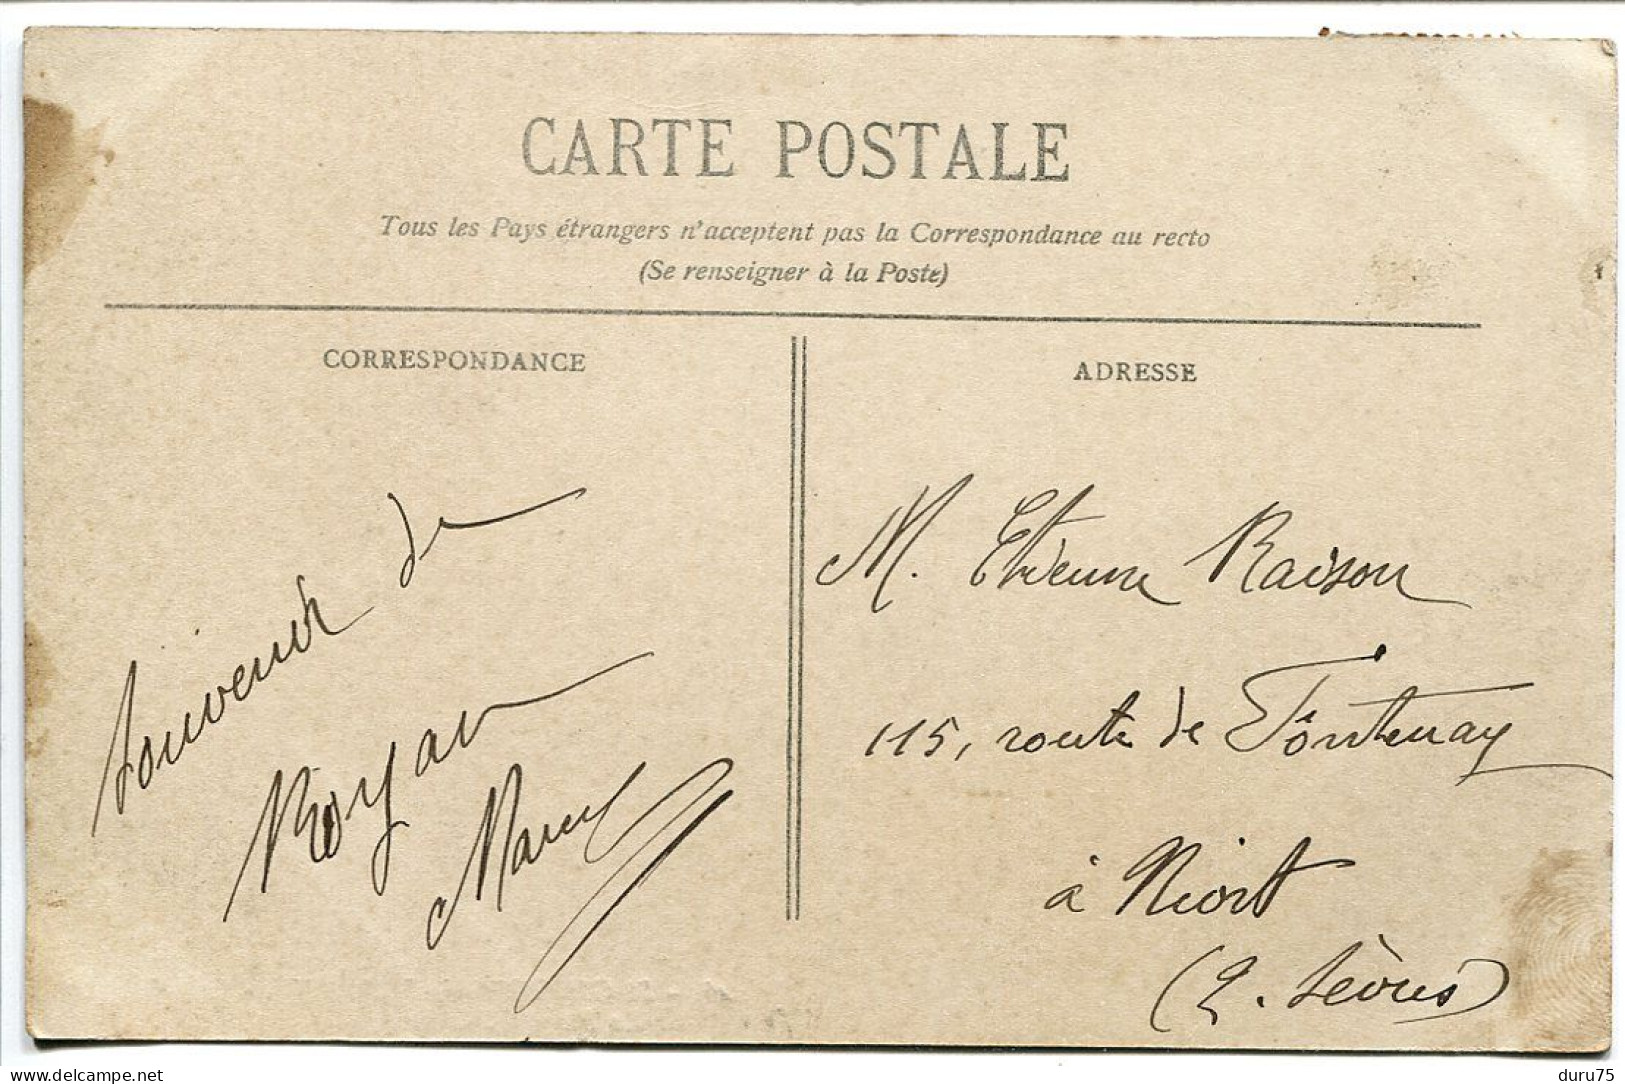 CARTE POSTALE
Tous les Pays étrangers n'acceptent pas la Correspondance au recto
(Se renseigner à la Poste)
CORRESPONDANCE
Souvenir de
Royan
Marcel
ADRESSE
M. Etienne Raison
115, route de Fontenay
à Niort
(2. Sèvres)
website: delcampe.net
duru75